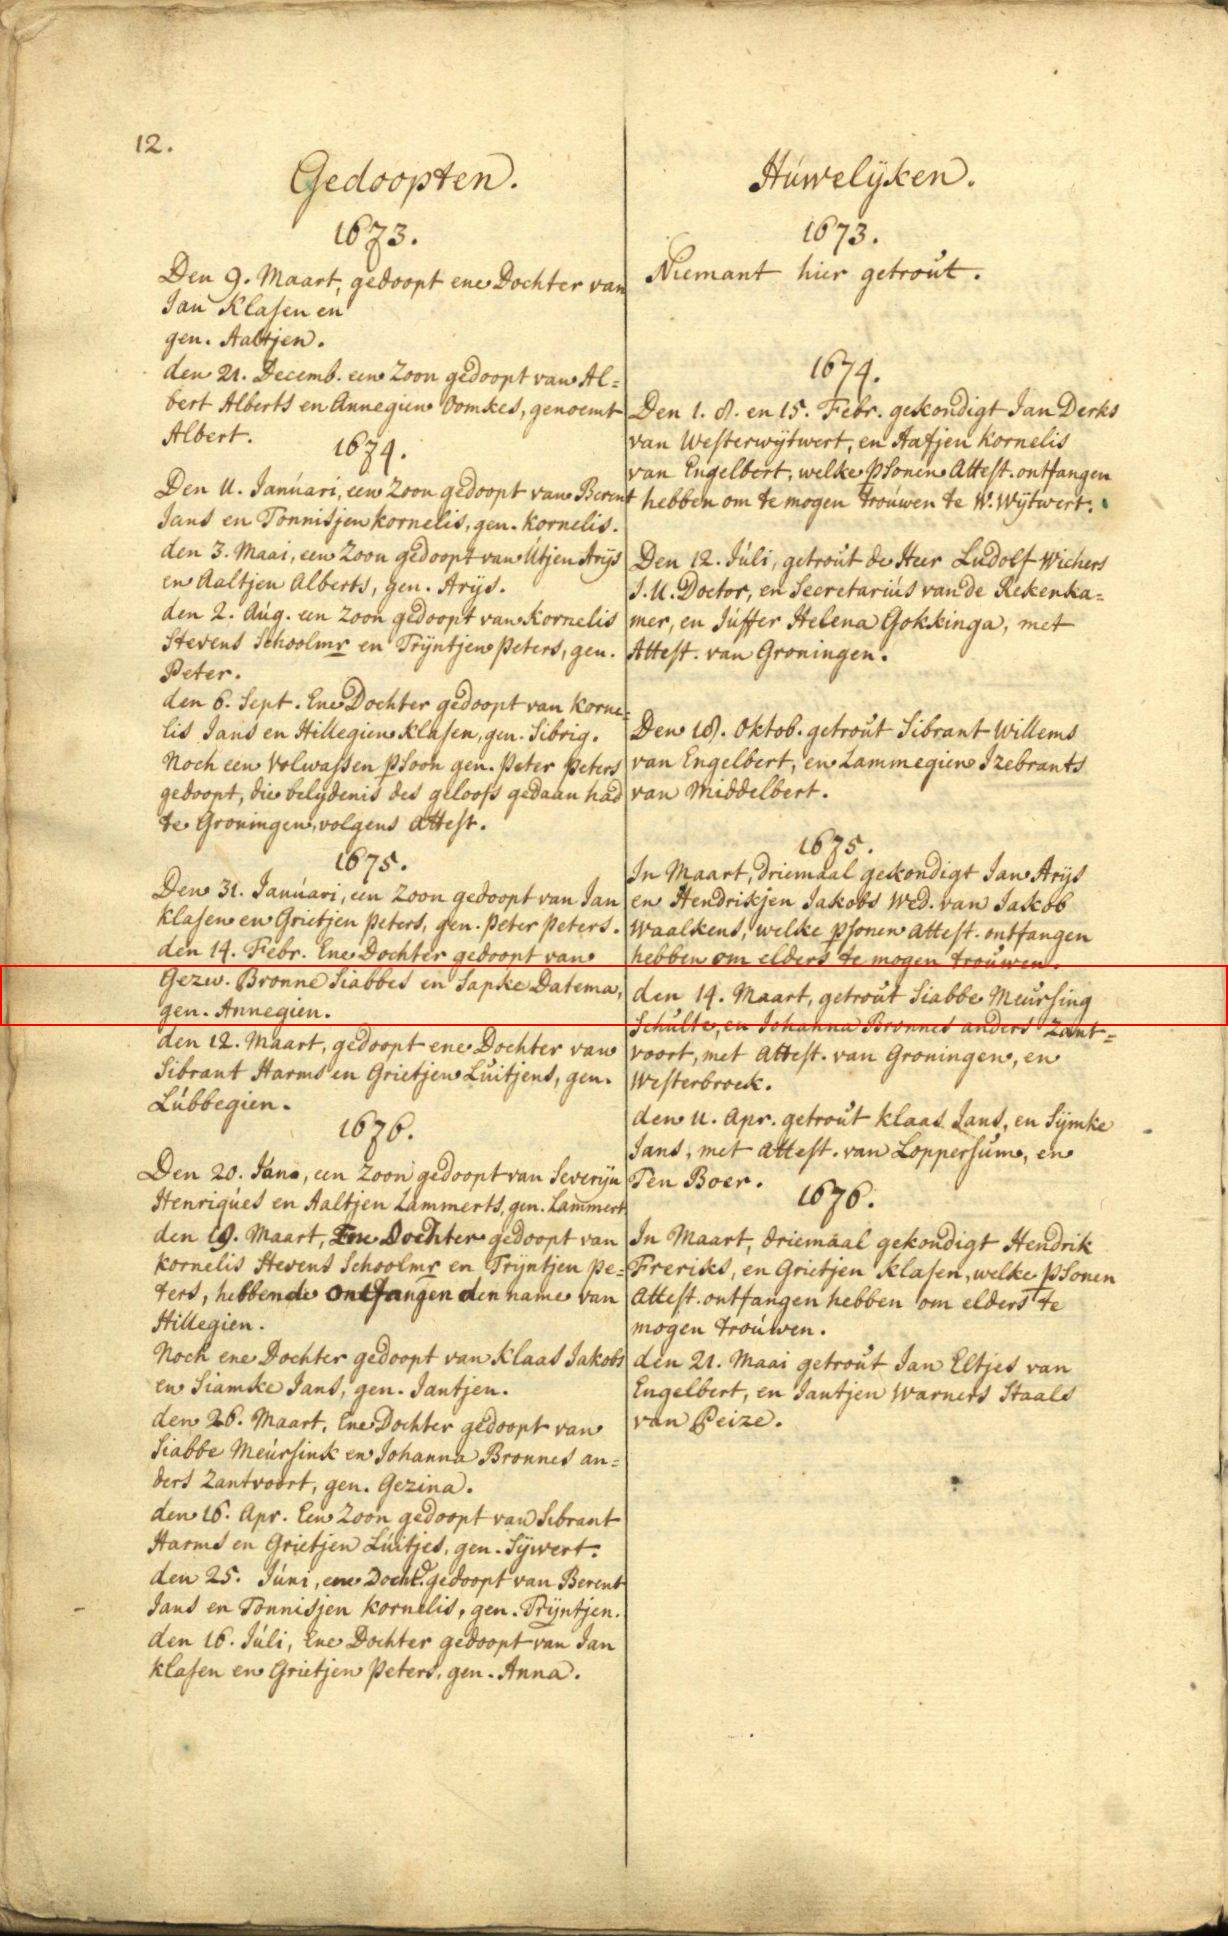 12.
Gedoopten.
1673.
Den 9. Maart, gedoopt ene Dochter van
Jan Klasen en
gen. Aaltjen.
den 21. Decemb. een Zoon gedoopt van Al=
bert Alberts en Annegien Oomkes, genoemt
Albert.
1674.
Den 11. Januari, een Zoon gedoopt van Berent
Jans en Tonnisjen Kornelis, gen. Kornelis.
den 3. Maai, een Zoon gedoopt van Utjen Arijs
en Aaltjen Alberts, gen. Arijs.
den 2. Aug. een Zoon gedoopt van Kornelis
Stevens Schoolmr en Trijntjen Peters, gen.
Peter.
den 6. Sept. Ene Dochter gedoopt van Korne=
lis Jans en Hillegien Klasen, gen. Sibrig.
Noch een Volwassen psoon gen. Peter Peters
gedoopt, die belijdenis des geloofs gedaan had
te Groningen, volgens attest.
1675.
Den 31. Januari, een Zoon gedoopt van Jan
Klasen en Grietjen Peters, gen. Peter Peters.
den 14. Febr. Ene Dochter gedoopt van
Gezw. Bronne Siabbes en Sapke Datema,
gen. Annegien.
den 12. Maart, gedoopt ene Dochter van
Sibrant Harms en Grietjen Luitjens, gen.
Lubbegien.
1676.
Den 20. Jan., een Zoon gedoopt van Severijn
Henriques en Aaltjen Lammerts, gen. Lammert
den 19. Maart, Ene Dochter gedoopt van
Kornelis Stevens Schoolmr en Trijntjen Pe=
ters, hebbende ontfangen den name van
Hillegien.
Noch ene Dochter gedoopt van Klaas Jakobs
en Siamke Jans, gen. Jantjen.
den 26. Maart, Ene Dochter gedoopt van
Siabbe Meursink en Johanna Bronnes an=
ders Zantvoort, gen. Gezina.
den 16. Apr. Een Zoon gedoopt van Sibrant
Harms en Grietjen Luitjes, gen. Sijwert.
den 25. Juni, ene Docht. gedoopt van Berent
Jans en Tonnisjen Kornelis, gen. Trijntjen.
den 16. Juli, Ene Dochter gedoopt van Jan
Klasen en Grietjen Peters, gen. Anna.
Huwelijken.
1673.
Niemant hier getrout.
1674.
Den 1. 8. en 15. Febr. gekondigt Jan Derks
van Westerwijtwert, en Aafjen Kornelis
van Engelbert, welke psonen Attest. ontfangen
hebben om te mogen trouwen te W. Wijtwert.
Den 12. Juli, getrout de Heer Ludolf Wichers
J. U. Doctor, en Secretarius van de Rekenka=
mer, en Juffer Helena Gokkinga, met
Attest. van Groningen.
Den 18. Oktob. getrout Sibrant Willems
van Engelbert, en Lammegien Izebrants
van Middelbert.
1675.
In Maart, driemaal gekondigt Jan Arijs
en Hendrikjen Jakobs Wed. van Jakob
Waalkens, welke psonen attest. ontfangen
hebben om elders te mogen trouwen.
den 14. Maart, getrout Siabbe Meursing
Schulte, en Johanna Bronnes anders Zant=
voort, met attest. van Groningen, en
Westerbroek.
den 11. Apr. getrout Klaas Jans, en Sijmke
Jans, met attest. van Loppersum, en
Ten Boer.
1676.
In Maart, driemaal gekondigt Hendrik
Freriks, en Grietjen Klasen, welke psonen
attest. ontfangen hebben om elders te
mogen trouwen.
den 21. Maai getrout Jan Eltjes van
Engelbert, en Jantjen Warners Staals
van Peize.